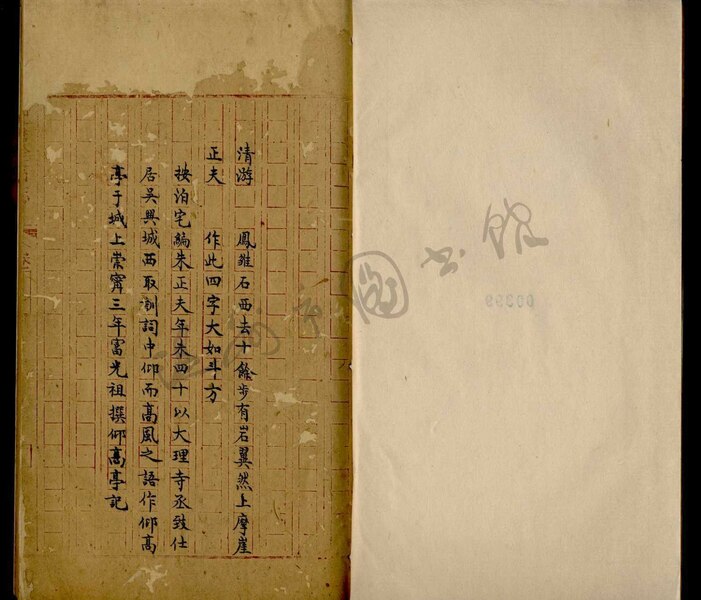 清游　鳳雛石西去十餘步有岩翼然上摩崖
正夫　作此四字大如斗方
按泊宅編朱正夫年未四十以大理寺丞致仕
居吳興城西取訓詞中仰而高風之語作仰高
亭于城上崇寧三年富光祖撰仰高亭記
00399